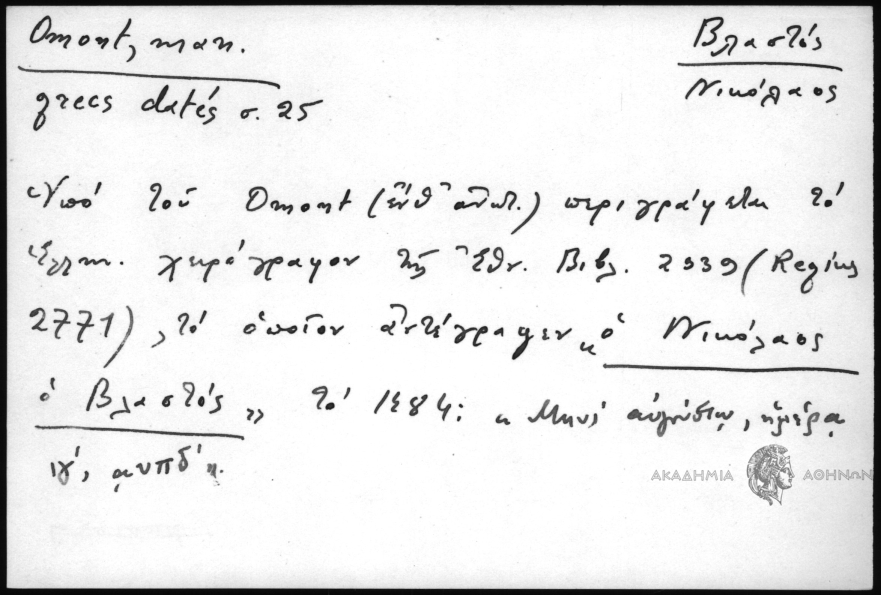 Omont, man. Βλαστός
grecs datés σ. 25 Νικόλαος
Ὑπό τοῦ Omont (ἔνθ' ἀνωτ.) περιγράφεται τό
ἑλλην. χειρόγραφον τῆς Ἐθν. Βιβλ. 2939 (Regius
2771), τό ὁποῖον ἀντέγραψεν « ὁ Νικόλαος
ὁ Βλαστός » τό 1484: « Μηνί αὐγούστῳ, ἡμέρᾳ
ιγ', ͵αυπδ' ».
ΑΚΑΔΗΜΙΑ ΑΘΗΝΩΝ